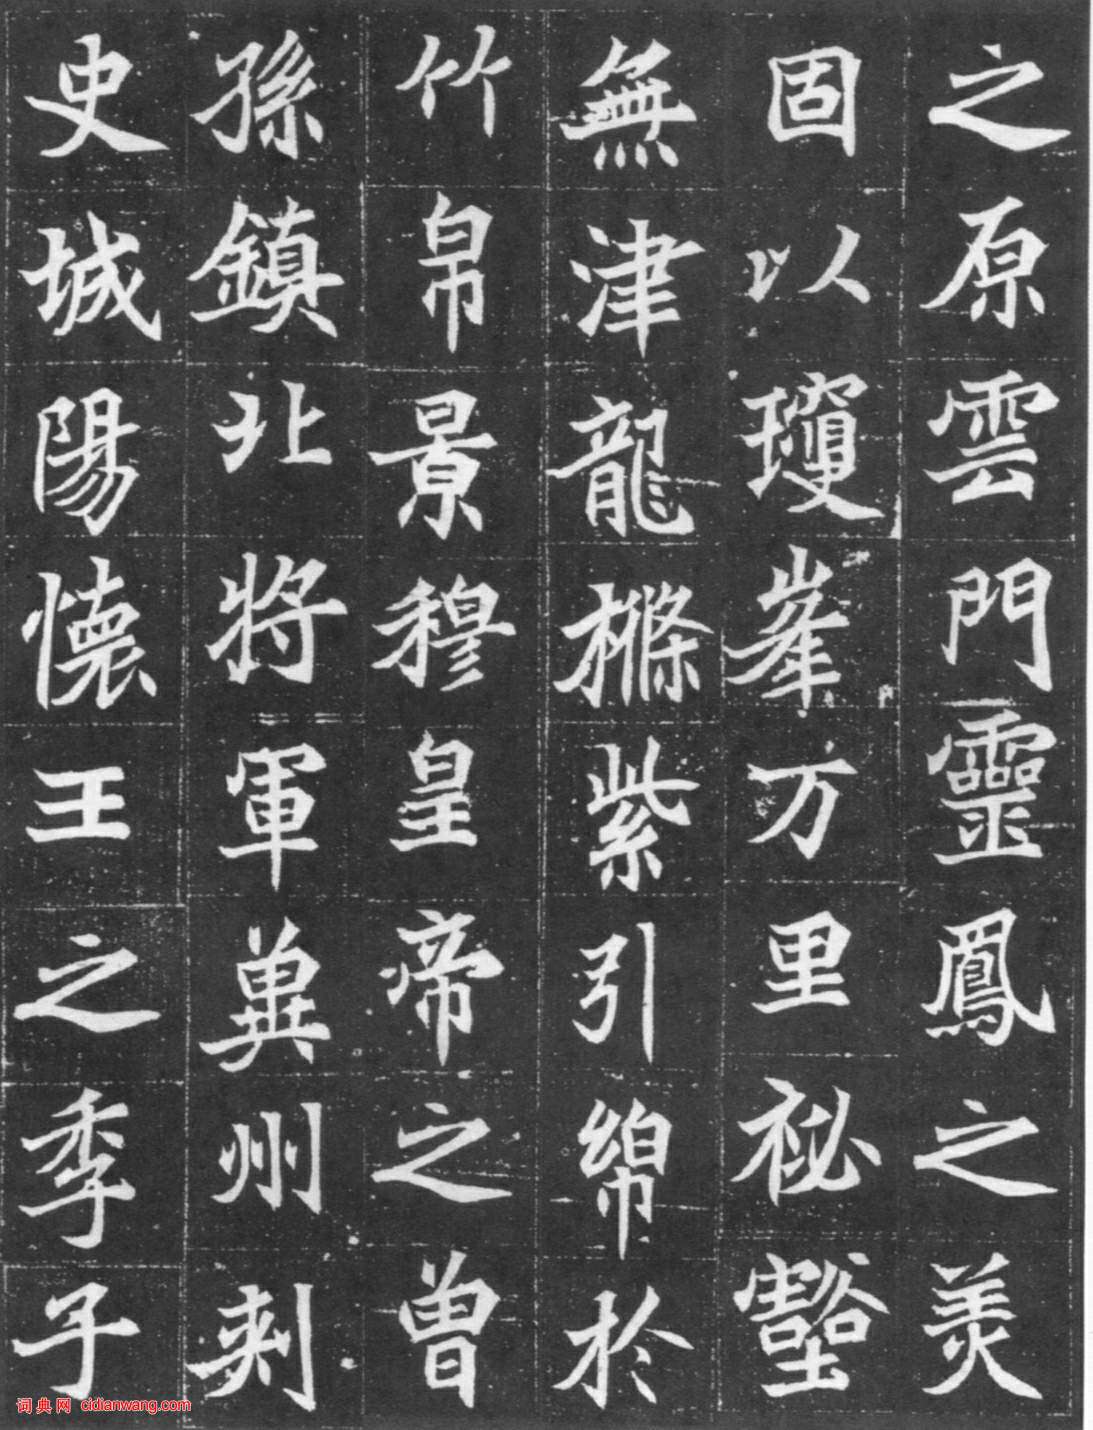 之原雲門靈鳳之美
固以瓊峯万里秘壑
無津龍樤紫引綿於
竹帛景穆皇帝之曾
孫鎮北將軍冀州刺
史城陽懷王之季子
词典网 cidianwang.com